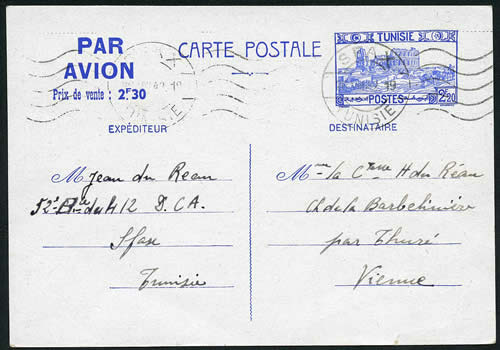 PAR AVION
Prix de vente : 2F30
CARTE POSTALE
TUNISIE
POSTES
2F20
SFAX
TUNISIE
EXPÉDITEUR
M Jean du Réau
52e Bie du 412 D.C.A.
Sfax
Tunisie
DESTINATAIRE
Mme la Ctesse H du Réau
Ch de la Barbelinière
par Thuré
Vienne